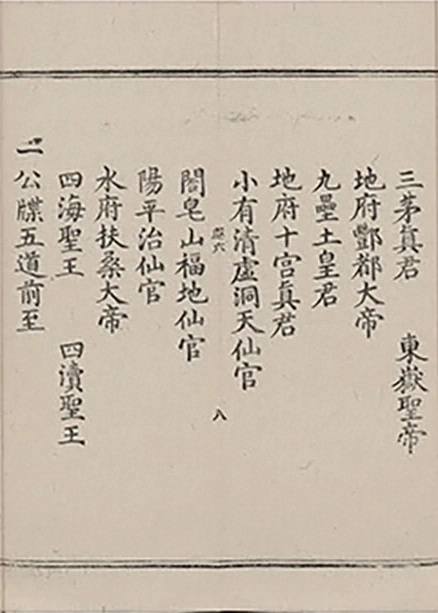 三茅真君　東嶽聖帝
地府酆都大帝
九壘土皇君
地府十宮真君
小有清虛洞天仙官
八
閤皂山福地仙官
陽平治仙官
水府扶桑大帝
四海聖王　四瀆聖王
二公牒五道前至